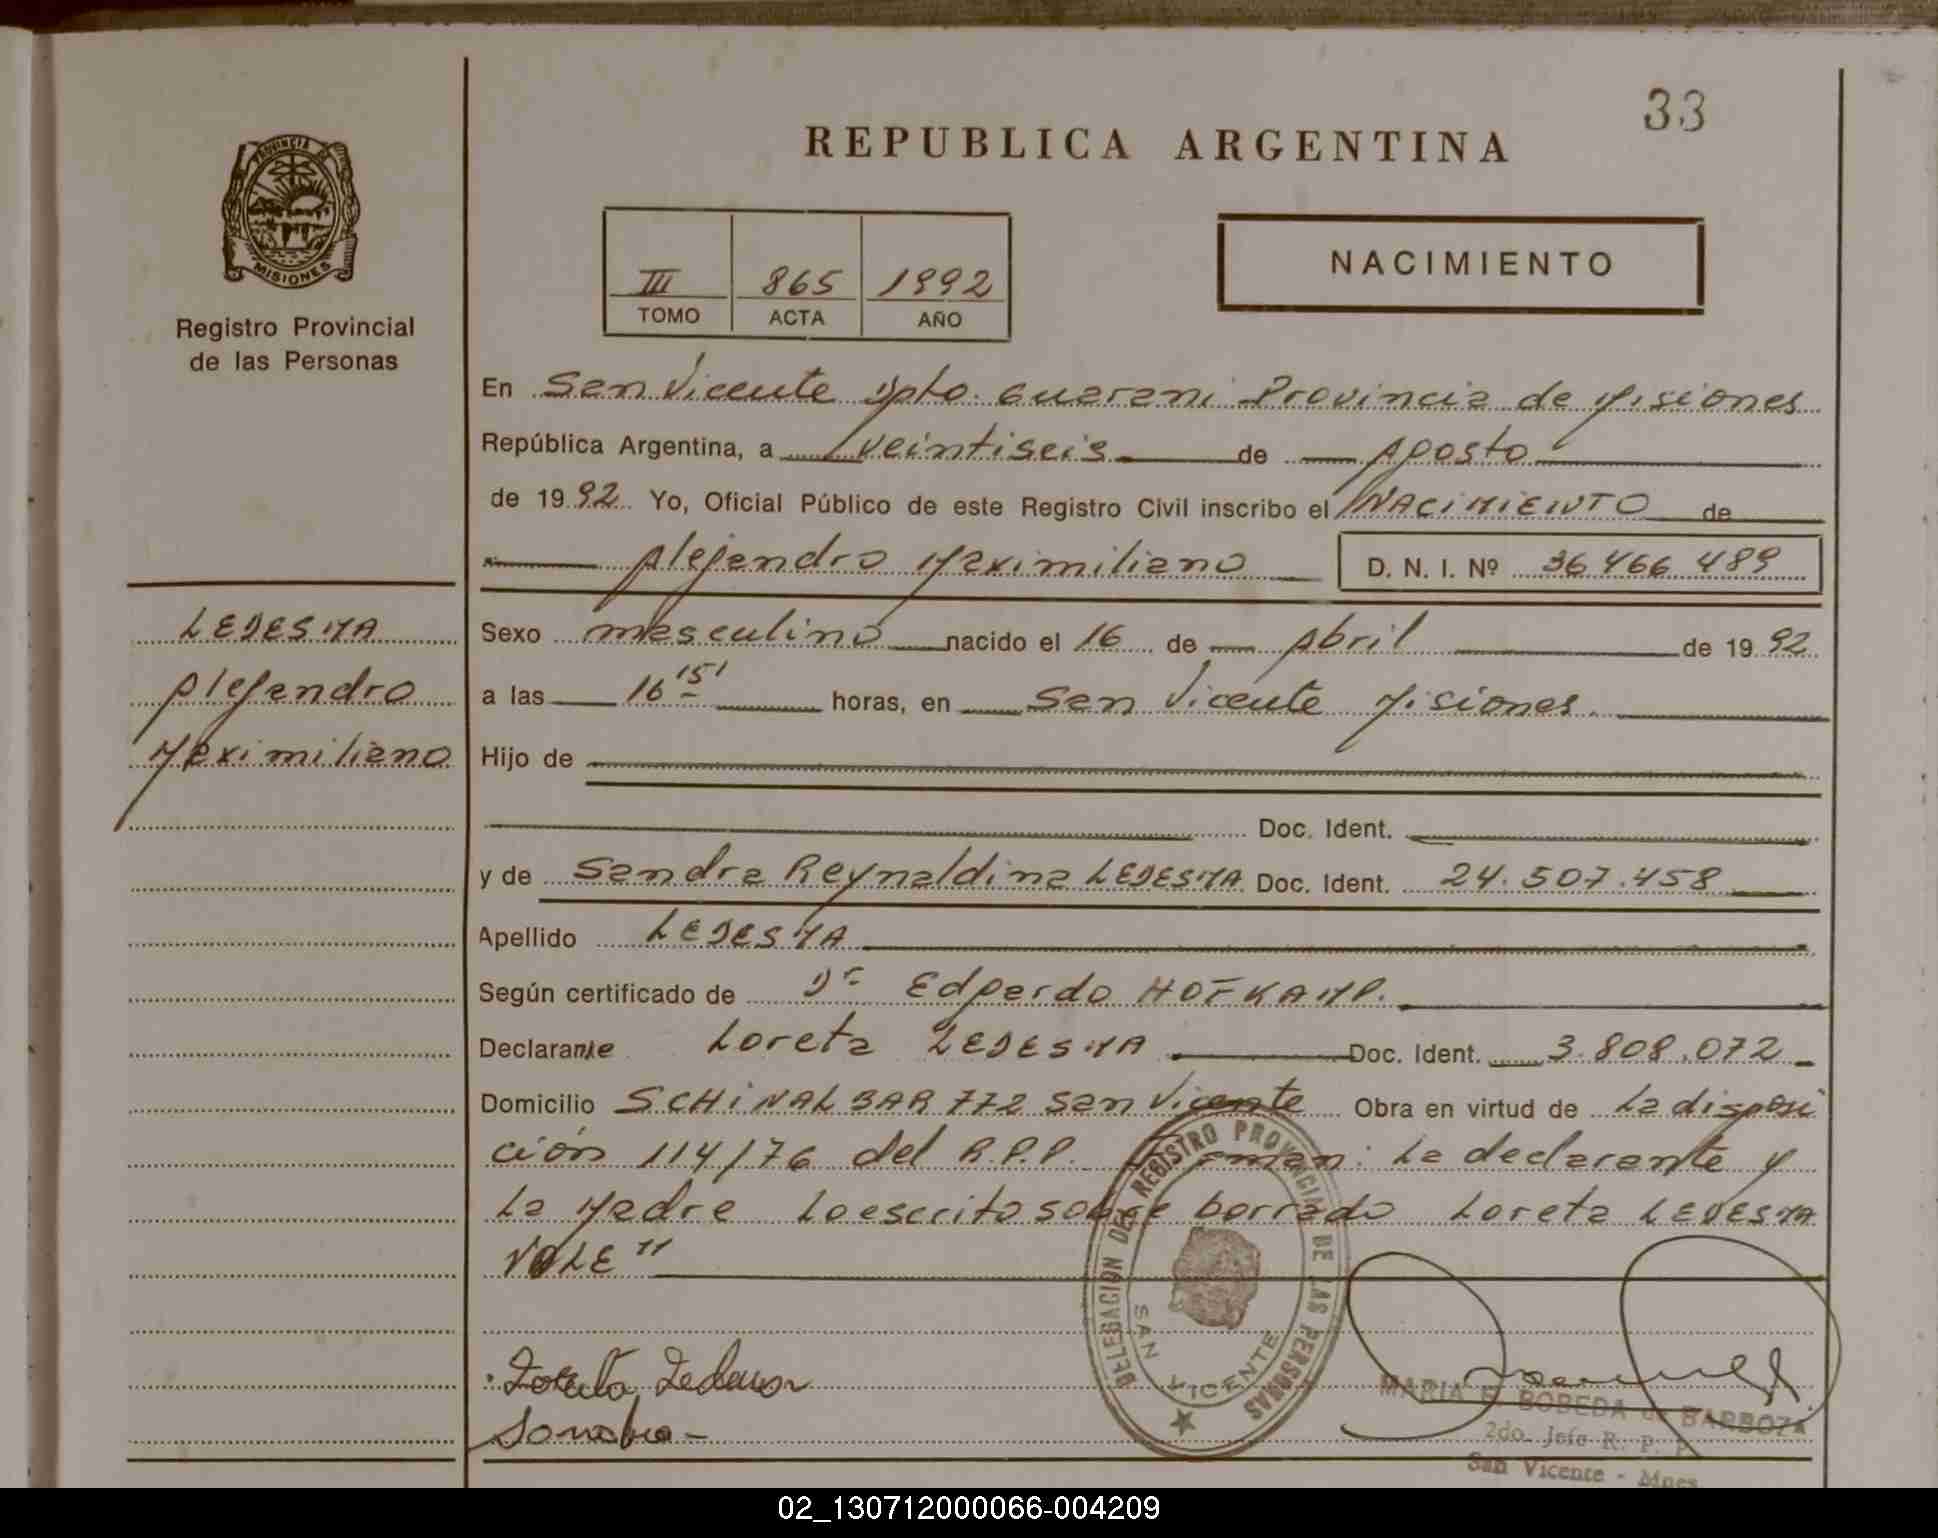 33
REPUBLICA ARGENTINA
PROVINCIA DE
MISIONES
Registro Provincial
de las Personas
III 865 1992
TOMO ACTA AÑO
NACIMIENTO
En San Vicente Dpto. Guarani Provincia de Misiones
República Argentina, a veintiseis de Agosto
de 1992. Yo, Oficial Público de este Registro Civil inscribo el NACIMIENTO de
Alejandro Maximiliano D. N. I. Nº 36 466 489
LEDESMA
Alejandro
Maximiliano
Sexo masculino nacido el 16 de Abril de 1992.
a las 16 15' horas, en San Vicente Misiones.
Hijo de
Doc. Ident.
y de Sandra Reynaldina LEDESMA Doc. Ident. 24.507.458
Apellido LEDESMA
Según certificado de Dr Edgardo HOFKAMP.
Declarante Loreta LEDESMA Doc. Ident. 3.808.072
Domicilio SCHINAL BAR 772 San Vicente Obra en virtud de La disposi
ción 114/76 del R.P.P. Firman: La declarante y
La Madre Lo escrito sobre borrado Loreta LEDESMA
VALE"
Loreta Ledesma
Sandra
DELEGACION DEL REGISTRO PROVINCIAL DE LAS PERSONAS
SAN VICENTE
MARIA E. BOBEDA de BARBOZA
2do. Jefe R. P. P.
San Vicente - Mnes
02_130712000066-004209